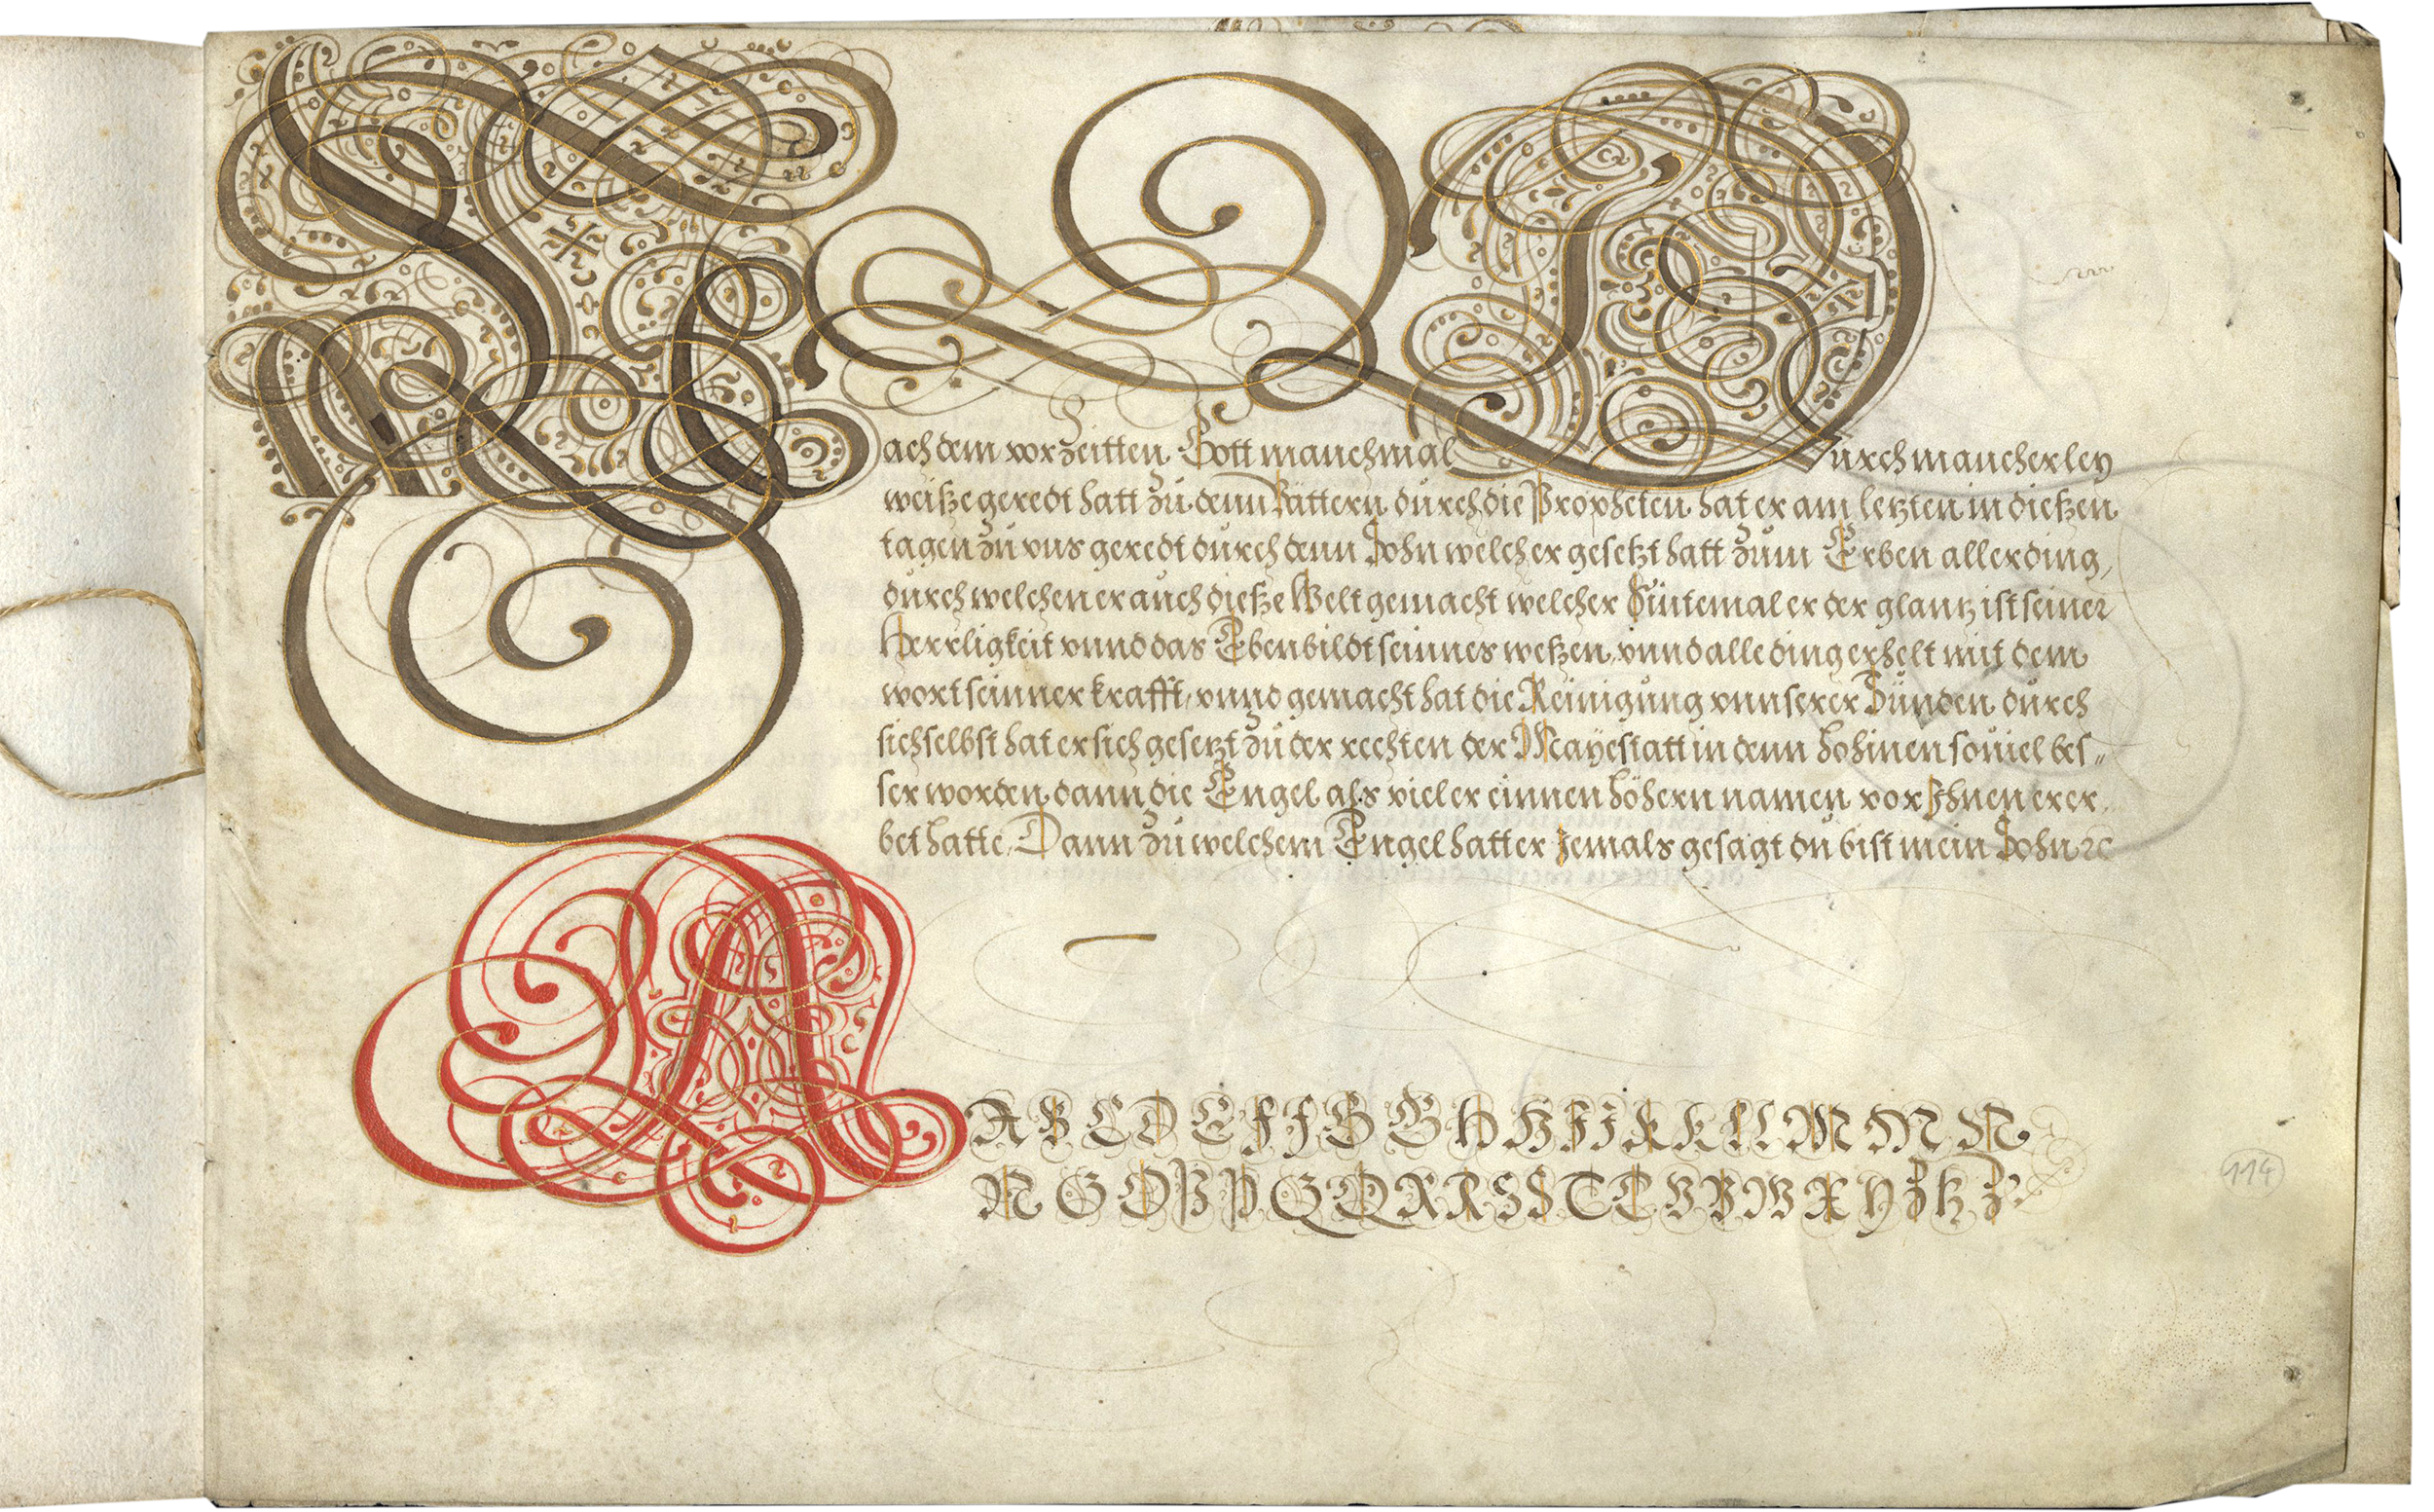 Nachdem vorzeitten Gott manchmal Durch mancherley
weißze geredt hatt zů denn Vättern durch die Propheten hat er am letzten in dießen
tagen zů vns geredt durch denn Sohn welcher gesetzt hatt zům Erben aller ding,
dürch welchen er auch dießze Welt gemacht welcher Sintemal er der glantz ist seiner
Herrligkeit vnnd das Ebenbildt seinnes weßen, vnnd alle ding erhelt mit dem
wort seinner krafft, vnnd gemacht hat die Reinigůng vnnserer Sünden durch
sich selbst hat er sich gesetzt zů der rechten der Mayestatt in denn hohinen souiel bes„
ser worden dann die Engel als viel er einnen höhern namen vor Ihnen erer„
bet hatte, Dann zů welchem Engel hatt er Jemals gesagt dů bist mein Sohn ꝛc
A B C D E F F G G H H I J K K L L M M N
N O O P P Q Q R R S S T T V V W X Y Z tz Z
114